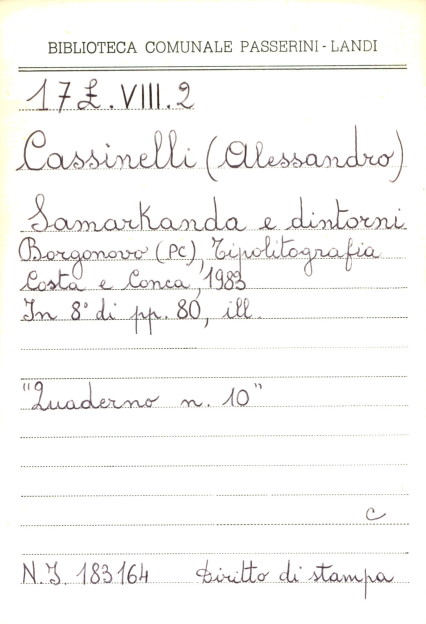 BIBLIOTECA COMUNALE PASSERINI - LANDI
17 L. VIII. 2
Cassinelli (Alessandro)
Samarkanda e dintorni
Borgonovo (PC), Tipolitografia
Costa e Conca, 1983
In 8° di pp. 80, ill.
"Quaderno n. 10"
C
N.I. 183164 Diritto di stampa